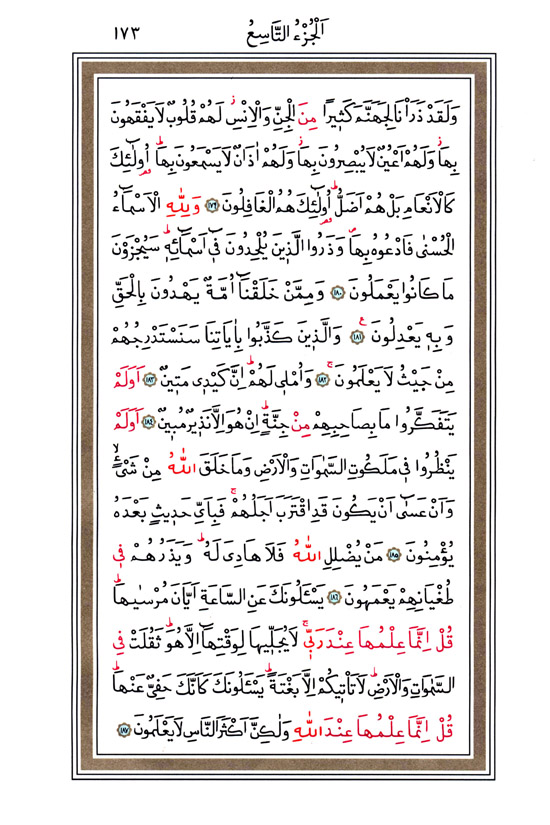 اَلْجُزْءُ التَّاسِعُ ١٧٣
وَلَقَدْ ذَرَأْنَا لِجَهَنَّمَ كَثِيرًا مِنَ الْجِنِّ وَالْاِنْسِ لَهُمْ قُلُوبٌ لَا يَفْقَهُونَ
بِهَا وَلَهُمْ اَعْيُنٌ لَا يُبْصِرُونَ بِهَا وَلَهُمْ اٰذَانٌ لَا يَسْمَعُونَ بِهَا اُولٰٓئِكَ
كَالْاَنْعَامِ بَلْ هُمْ اَضَلُّ اُولٰٓئِكَ هُمُ الْغَافِلُونَ ١٧٩ وَلِلّٰهِ الْاَسْمَٓاءُ
الْحُسْنٰى فَادْعُوهُ بِهَا وَذَرُوا الَّذِينَ يُلْحِدُونَ فِٓي اَسْمَٓائِهِ سَيُجْزَوْنَ
مَا كَانُوا يَعْمَلُونَ ١٨٠ وَمِمَّنْ خَلَقْنَٓا اُمَّةٌ يَهْدُونَ بِالْحَقِّ
وَبِهِ يَعْدِلُونَ ١٨١ وَالَّذِينَ كَذَّبُوا بِاٰيَاتِنَا سَنَسْتَدْرِجُهُمْ
مِنْ حَيْثُ لَا يَعْلَمُونَ ١٨٢ وَاُمْلِي لَهُمْ اِنَّ كَيْدِي مَتِينٌ ١٨٣ اَوَلَمْ
يَتَفَكَّرُوا مَا بِصَاحِبِهِمْ مِنْ جِنَّةٍ اِنْ هُوَ اِلَّا نَذِيرٌ مُبِينٌ ١٨٤ اَوَلَمْ
يَنْظُرُوا فِي مَلَكُوتِ السَّمٰوَاتِ وَالْاَرْضِ وَمَا خَلَقَ اللّٰهُ مِنْ شَيْءٍ
وَاَنْ عَسٰٓى اَنْ يَكُونَ قَدِ اقْتَرَبَ اَجَلُهُمْ فَبِاَيِّ حَدِيثٍ بَعْدَهُ
يُؤْمِنُونَ ١٨٥ مَنْ يُضْلِلِ اللّٰهُ فَلَا هَادِيَ لَهُ وَيَذَرُهُمْ فِي
طُغْيَانِهِمْ يَعْمَهُونَ ١٨٦ يَسْـَٔلُونَكَ عَنِ السَّاعَةِ اَيَّانَ مُرْسٰيهَا
قُلْ اِنَّمَا عِلْمُهَا عِنْدَ رَبِّي لَا يُجَلِّيهَا لِوَقْتِهَٓا اِلَّا هُوَ ثَقُلَتْ فِي
السَّمٰوَاتِ وَالْاَرْضِ لَا تَأْتِيكُمْ اِلَّا بَغْتَةً يَسْـَٔلُونَكَ كَاَنَّكَ حَفِيٌّ عَنْهَا
قُلْ اِنَّمَا عِلْمُهَا عِنْدَ اللّٰهِ وَلٰكِنَّ اَكْثَرَ النَّاسِ لَا يَعْلَمُونَ ١٨٧